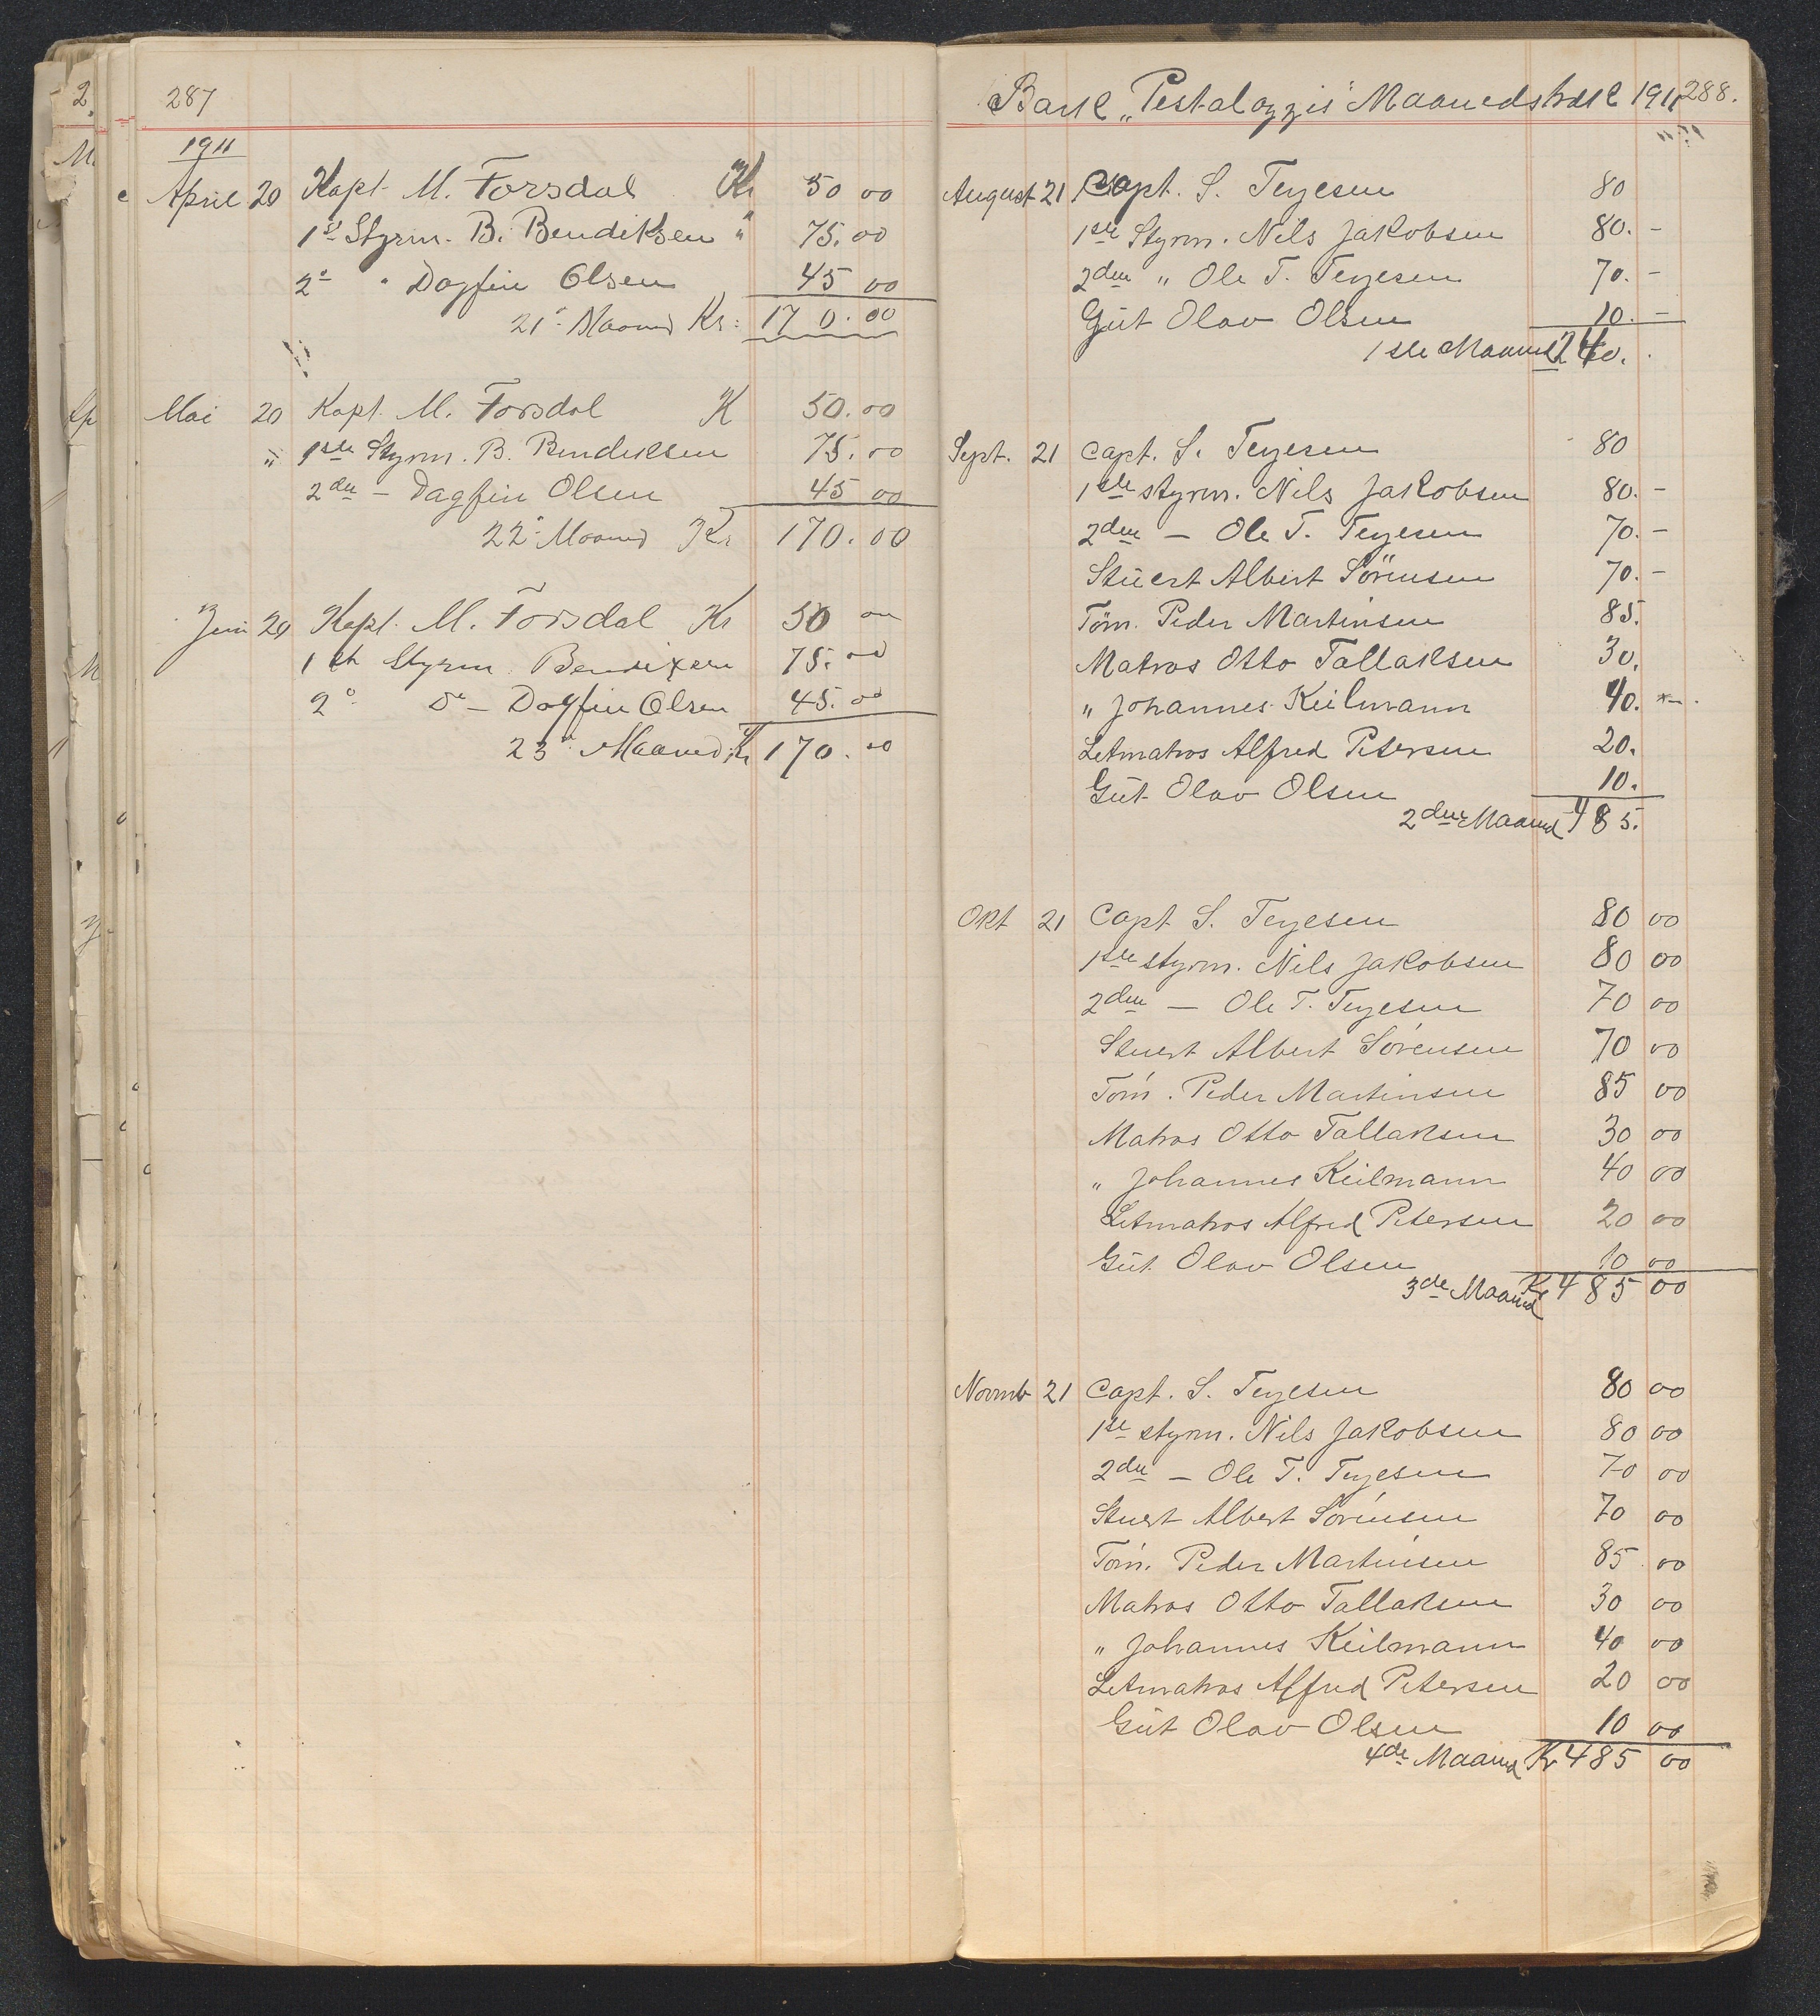 287
1911
April 20 Kapt. M. Forsdal Kr 50 00
1st Styrm. B. Bendiksen " 75.00
2n " Dagfin Olsen 45 00
21n Maaned Kr: 170.00
Mai 20 Kapt. M. Forsdal K 50.00
" 1ste Styrm. B. Bendiksen 75.00
2den – Dagfin Olsen 45 00
22n Maaned Kr 170.00
Juni 20 Kapt. M. Forsdal Kr 50 00
1st Styrm Bendixsen 75.00
2n Do – Dagfin Olsen 45.00
23n Maaned Kr 170.00
Bark „Pestalozzis" Maanedstræk 1911 288.
August 21 Capt. S. Terjesen 80
1ste Styrm. Nils Jakobsen 80. –
2den " Ole T. Terjesen 70. –
Gut Olav Olsen 10. –
1ste Maaned 240.
Sept. 21 Capt. S. Terjesen 80
1ste styrm. Nils Jakobsen 80. –
2den – Ole T. Terjesen 70. –
Stuert Albert Sörensen 70. –
Töm. Peder Martinsen 85.
Matros Otto Tallaksen 30.
" Johannes Keilmann 40. –
Letmatros Alfred Petersen 20.
Gut Olav Olsen 10.
2den Maaned 485.
Okt 21 Capt S. Terjesen 80 00
1ste styrm. Nils Jakobsen 80 00
2den – Ole T. Terjesen 70 00
Stuert Albert Sörensen 70 00
Töm. Peder Martinsen 85 00
Matros Otto Tallaksen 30 00
" Johannes Keilmann 40 00
Letmatros Alfred Petersen 20 00
Gut Olav Olsen 10 00
3de Maaned Kr 485 00
Novmb 21 Capt. S. Terjesen 80 00
1ste styrm. Nils Jakobsen 80 00
2den – Ole T. Terjesen 70 00
Stuert Albert Sörensen 70 00
Töm. Peder Martinsen 85 00
Matros Otto Tallaksen 30 00
" Johannes Keilmann 40 00
Letmatros Alfred Petersen 20 00
Gut Olav Olsen 10 00
4de Maaned Kr 485 00